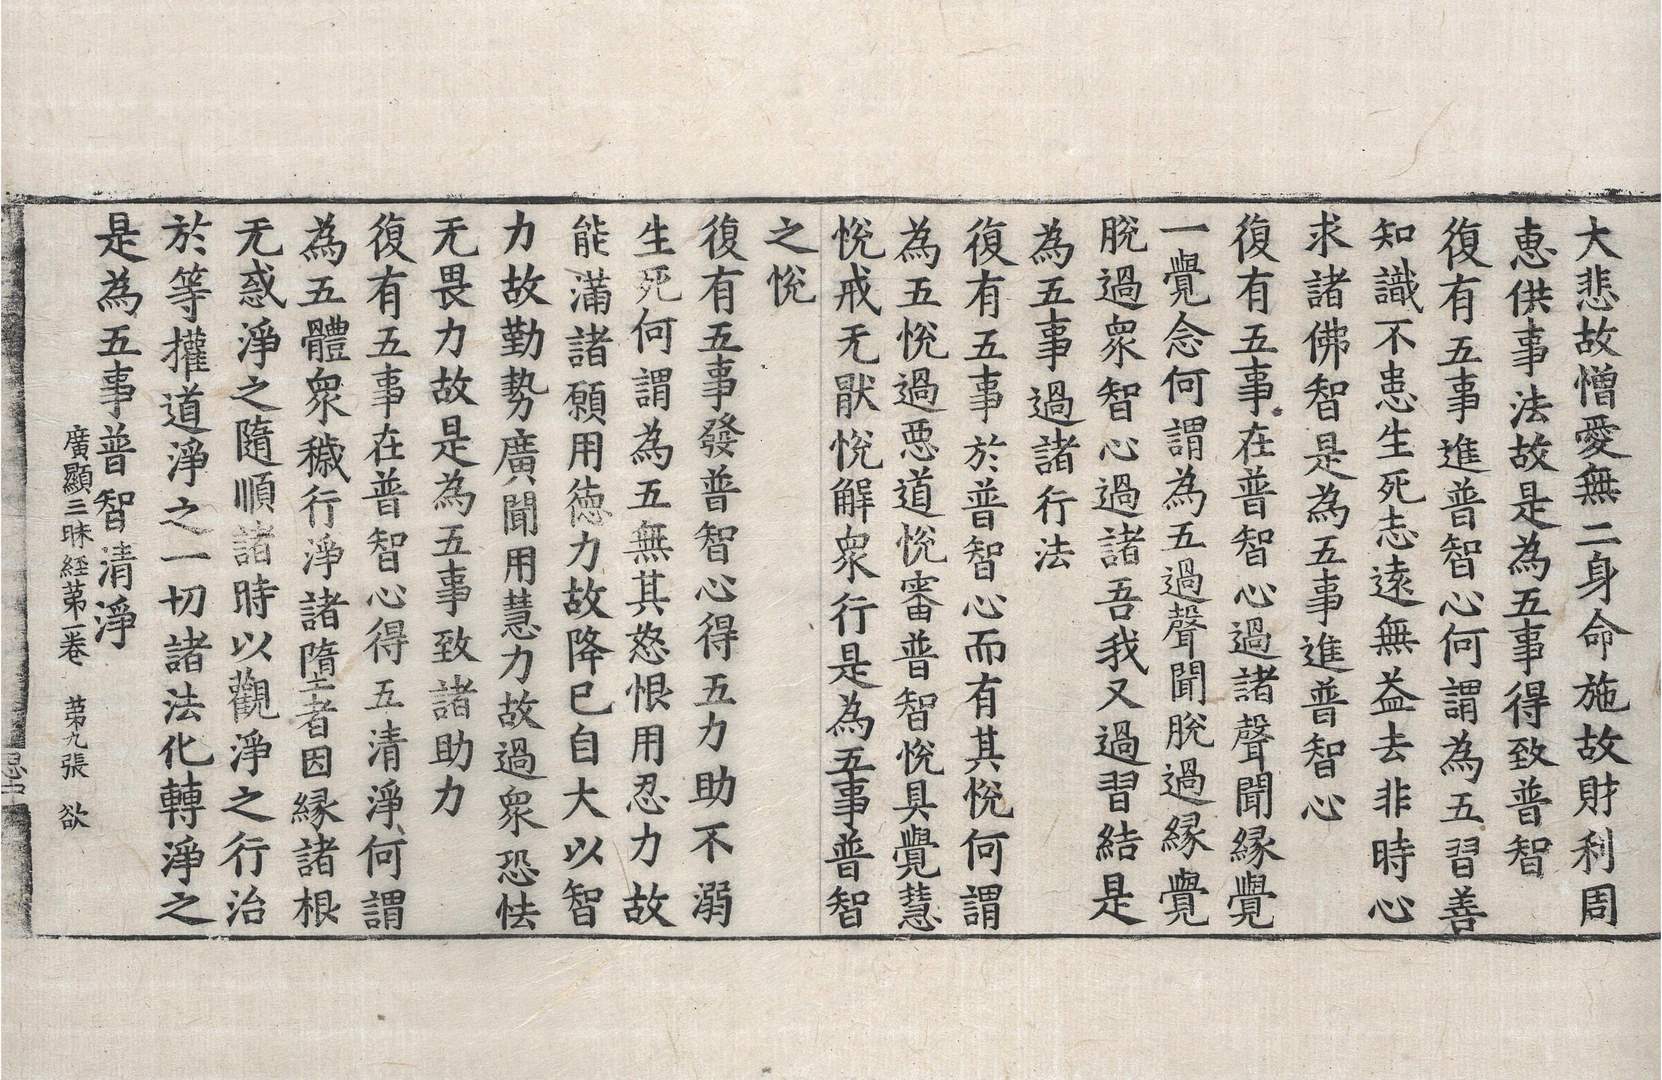 大悲故憎愛無二身命施故財利周
惠供事法故是為五事得致普智
復有五事進普智心何謂為五習善
知識不恚生死志遠無益去非時心
求諸佛智是為五事進普智心
復有五事在普智心過諸聲聞縁覺
一覺念何謂為五過聲聞脫過縁覺
脫過衆智心過諸吾我又過習結是
為五事過諸行法
復有五事於普智心而有其恱何謂
為五恱過悪道恱審普智恱具覺慧
恱戒无猒恱解衆行是為五事普智
之恱
復有五事發普智心得五力助不溺
生死何謂為五無其怒恨用忍力故
能滿諸願用徳力故降已自大以智
力故勤勢廣聞用慧力故過衆恐怯
无畏力故是為五事致諸助力
復有五事在普智心得五清淨何謂
為五體衆穢行淨諸墮者因縁諸根
无惑淨之隨順諸時以觀淨之行治
於等權道淨之一切諸法化轉淨之
是為五事普智清淨
廣顯三昧経苐一卷 苐九張 欲